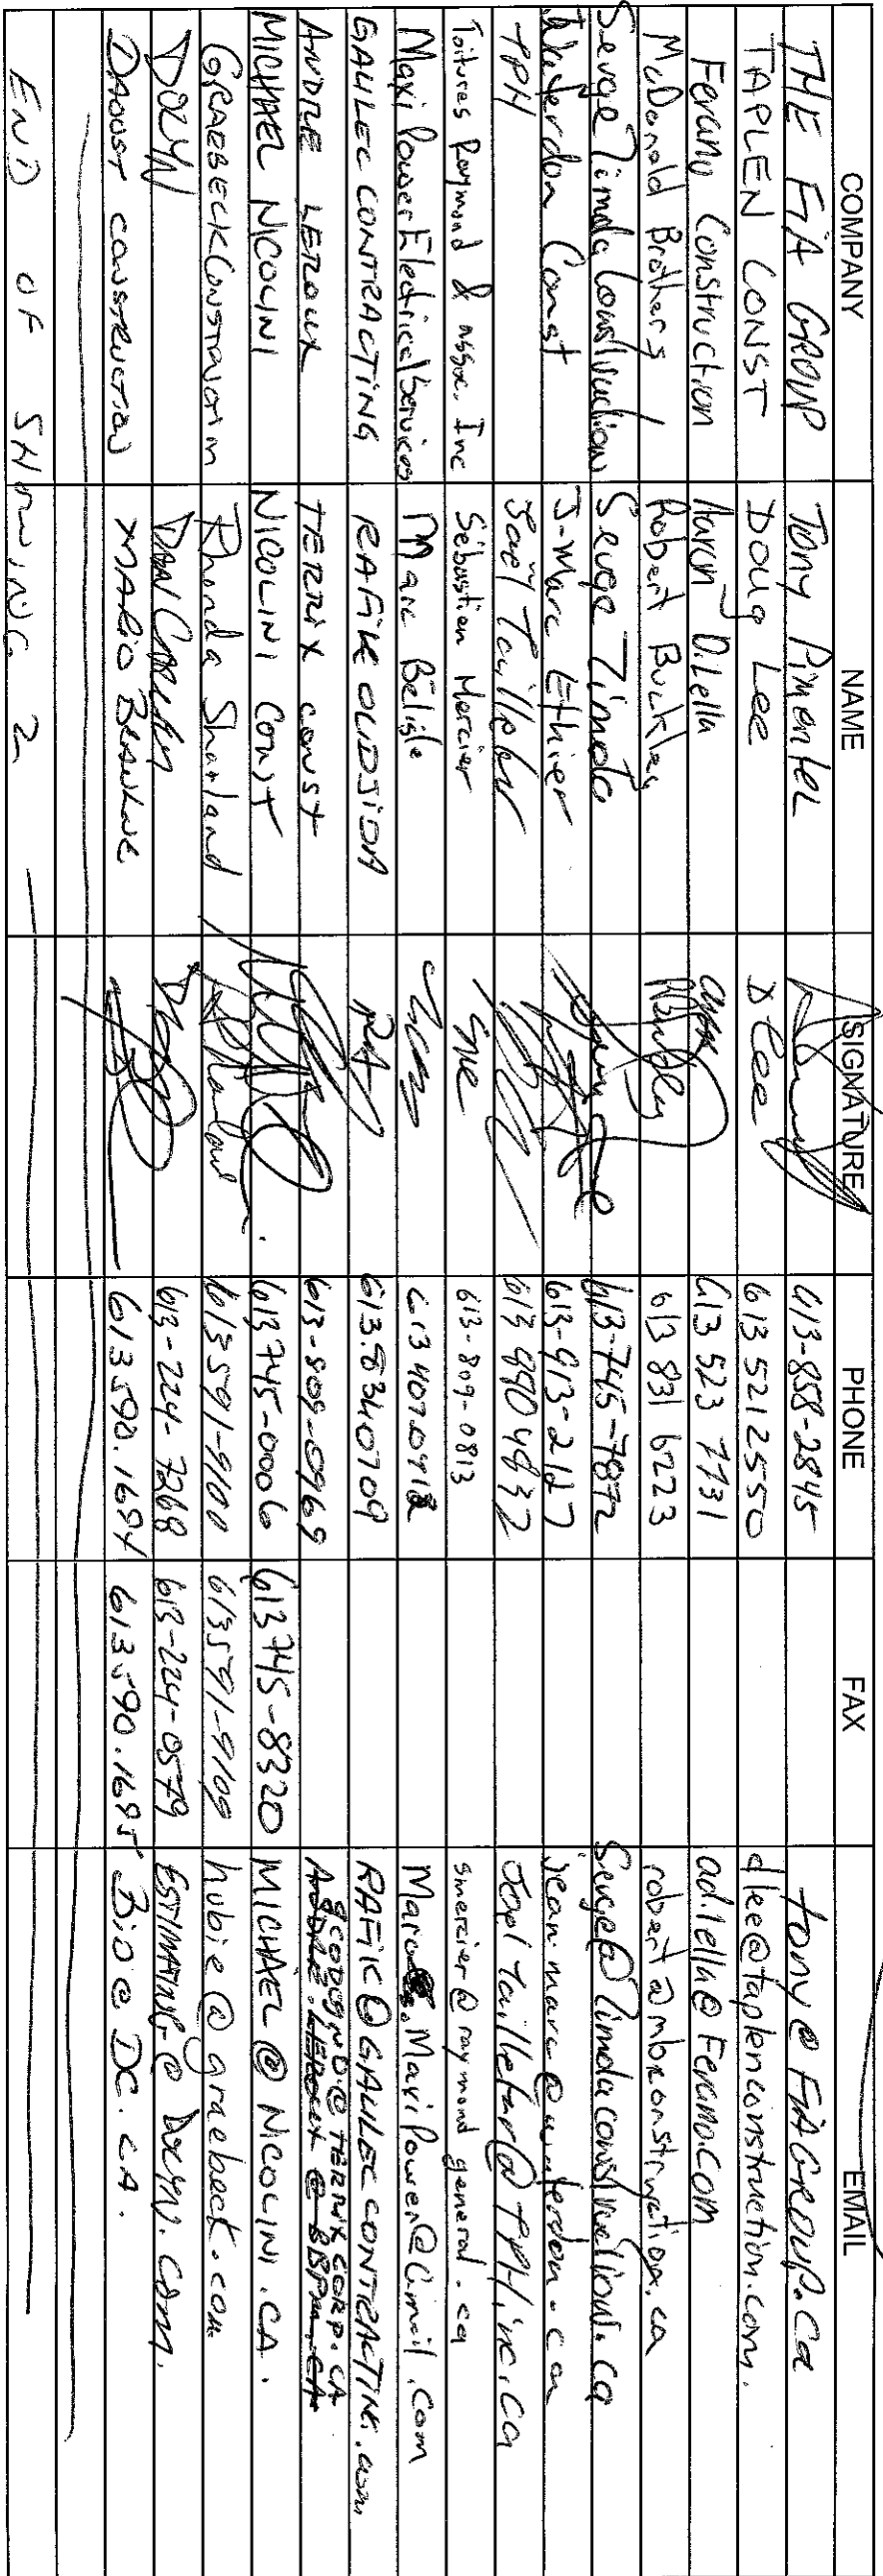 COMPANY NAME SIGNATURE PHONE FAX EMAIL
THE FIA GROUP Tony Pimentel 613-858-2845 tony@FIAGROUP.Ca
TAPLEN CONST Doug Lee D Lee 613 521 2550 dlee@taplenconstruction.com.
Ferano Construction Aaron DiLella 613 523 7731 adilella@Ferano.com
McDonald Brothers Robert Buckley RBuckley 613 831 6223 robert@mbconstruction.ca
Serge Limda Construction Serge Limda 613-745-7872 Serge@limdaconstruction.ca
Waterdon Const J-Marc Ethier 613-913-2127 jean.marc@waterdon.ca
TPH Joël Taillefer 613 890 4832 Joel taillefer@TPH.inc.ca
Toitures Raymond & assoc. Inc Sébastien Mercier 613-809-0813 smercier@raymond general.ca
Maxi Power Electrical Services Marc Belisle 613 407 0412 MaxiPower@Gmail.com
GAULEC CONTRACTING RAFIK OUDJIDA 613.8340709 RAFIC@GAULECCONTRACTING.com
ANDRE LEROUX TERRIX const 613-809-0969 @TERRIXCORP.CA
MICHAEL NICOLINI NICOLINI Const 613 745-0006 613 745-8320 MICHAEL@NICOLINI.CA.
GRAEBECK Construction Rhonda Sharland 613 591-9100 613 591-9109 hubie@graebeck.com
DOLYN 613-224-7268 613-224-0579 ESTIMATING@DOLYN.COM.
DAOUST CONSTRUCTION MARIO 613 590.1694 613 590.1695 Bio@DC.CA.
END OF SHOWING 2